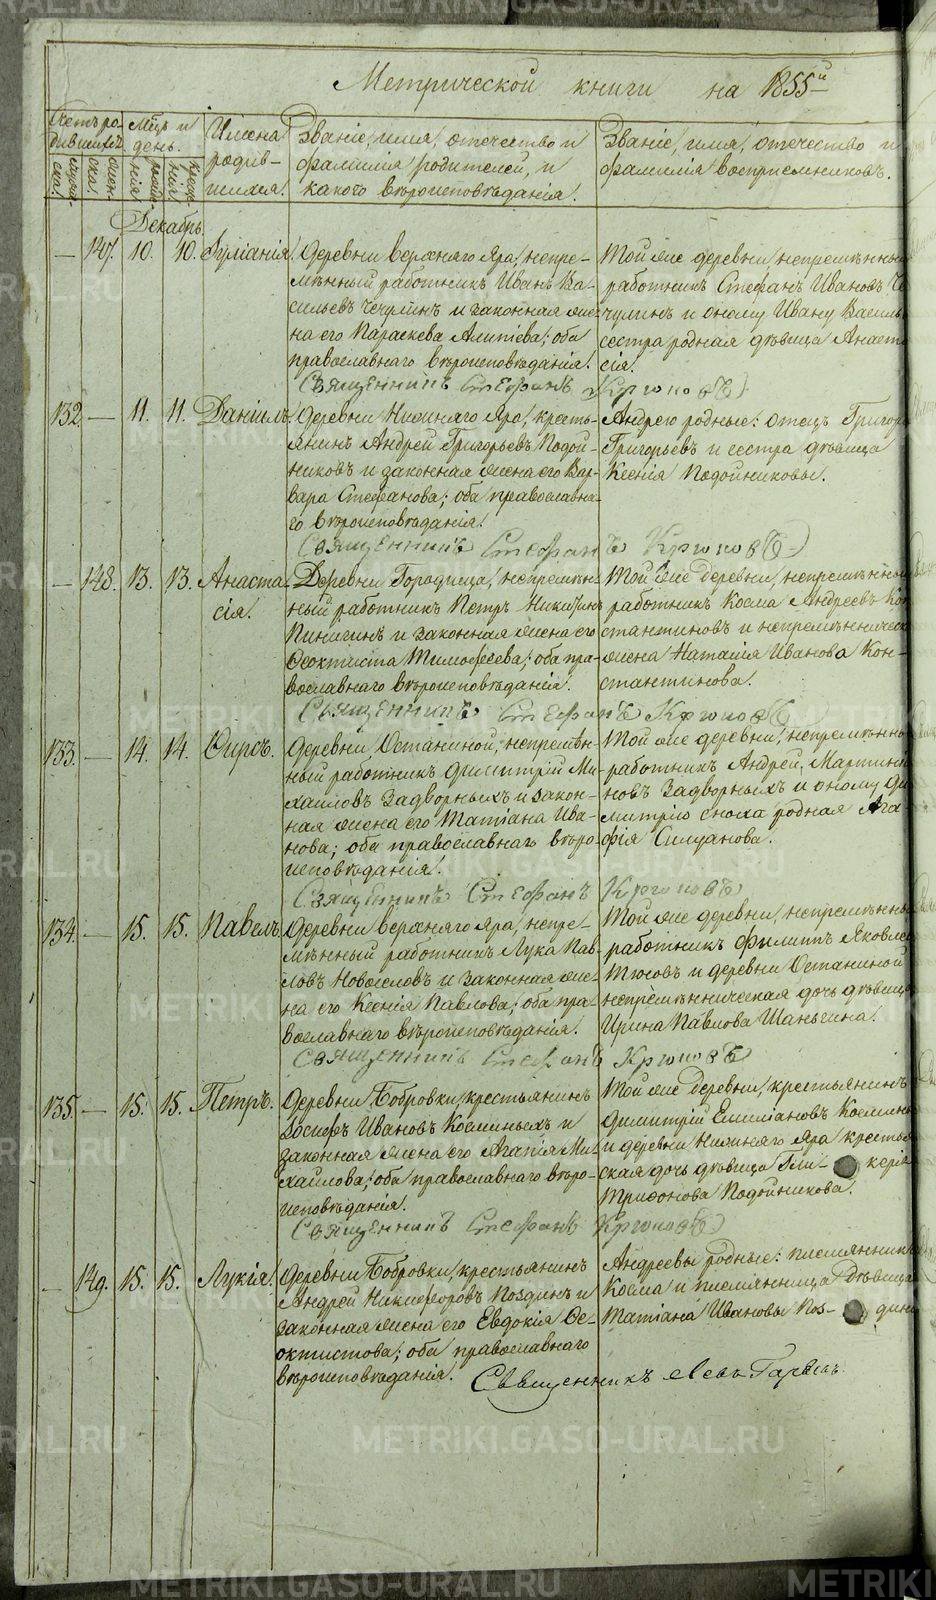 Метрической книги на 1855й
Счетъ родившихся.
Мѣсц. и день.
Имена родившихся.
Званіе, имя, отечество и
фамилія родителей, и
какого вѣроисповѣданія.
Званіе, имя, отечество и
фамилія воспріемниковъ.
Декабрь.
— 147. 10. 10. Іуліанія.
Деревни верхняго Яра, непре-
мѣнный работникъ Иванъ Ва-
сильевъ Чечулинъ и законная же-
на его Параскева Алипіева; оба
православнаго вѣроисповѣданія.
Той же деревни, непремѣнный
работникъ Стефанъ Ивановъ Че
чулинъ и оному Ивану Василь
сестра родная дѣвица Анаста
сія.
Священникъ Стефанъ
132. — 11. 11. Даніилъ.
Деревни Нижняго Яра, кресть-
янинъ Андрей Григорьевъ Подой-
никовъ и законная жена его Вар-
вара Стефанова; оба православна-
го вѣроисповѣданія.
Андрею родные: отецъ Григор
Григорьевъ и сестра дѣвица
Ксенія Подойниковы.
Священникъ Стефанъ
— 148. 13. 13. Анаста-
сія.
Деревни Городища, непремѣн-
ный работникъ Петръ Никитинъ
Пинигинъ и законная жена его
Ѳеоктиста Тимофеева; оба пра-
вославнаго вѣроисповѣданія.
Той же деревни, непремѣнный
работникъ Косма Андреевъ Кон
стантиновъ и непремѣнническая
жена Наталія Иванова Кон-
стантинова.
Священникъ Стефанъ
133. — 14. 14. Ѳирсъ.
Деревни Останиной, непремѣн-
ный работникъ Димитрій Ми-
хаиловъ Задворныхъ и закон-
ная жена его Татіана Ива-
нова; оба православнаго вѣро-
исповѣданія.
Той же деревни, непремѣнный
работникъ Андрей Мартині
новъ Задворныхъ и оному Ди
митрію сноха родная Ага-
фія Силуанова.
Священникъ Стефанъ
134. — 15. 15. Павелъ.
Деревни верхняго Яра, непре-
мѣнный работникъ Лука Пав-
ловъ Новоселовъ и законная же-
на его Ксенія Павлова; оба пра-
вославнаго вѣроисповѣданія.
Той же деревни, непремѣнный
работникъ Филиппъ Яковлев
Тюсовъ и деревни Останиной
непремѣнническая дочь дѣвица
Ирина Павлова Шаньгина.
Священникъ Стефанъ
135. — 15. 15. Петръ.
Деревни Бобровки, крестьянинъ
Іосифъ Ивановъ Косминыхъ и
законная жена его Агапія Ми-
хаилова; оба православнаго вѣро-
исповѣданія.
Той же деревни, крестьянинъ
Димитрій Емиліановъ Косминых
и деревни Нижняго Яра крестьян
ская дочь дѣвица Гли- керія
Трифонова Подойникова.
Священникъ Стефанъ
— 149. 15. 15. Лукія.
Деревни Бобровки, крестьянинъ
Андрей Никифоровъ Поздинъ и
законная жена его Евдокія Ѳе-
октистова; оба православнаго
вѣроисповѣданія.
Андреевы родные: племянникъ
Косма и племянница дѣвица
Татіана Ивановы Поз- дины
Священникъ Левъ
METRIKI.GASO-URAL.RU